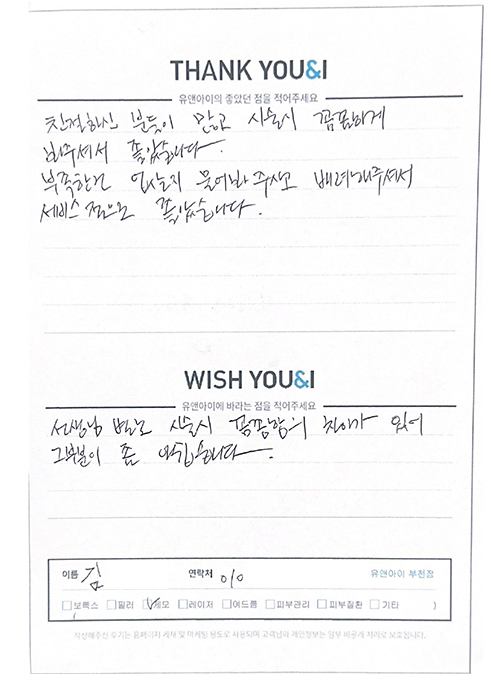 THANK YOU&I
유앤아이의 좋았던 점을 적어주세요
친절하신 분들이 많고 시술시 꼼꼼하게
봐주셔서 좋았습니다.
부족한건 없는지 물어봐주시고 배려해주셔서
서비스적으로 좋았습니다.
WISH YOU&I
유앤아이에 바라는 점을 적어주세요
선생님 별로 시술시 꼼꼼함의 차이가 있어
그부분이 좀 아쉽습니다.
이름 김 연락처 010 유앤아이 부천점
보톡스 필러 제모 레이저 여드름 피부관리 피부질환 기타 )
작성해주신 후기는 홈페이지 게재 및 마케팅 용도로 사용되며 고객님의 개인정보는 일부 비공개 처리로 보호됩니다.